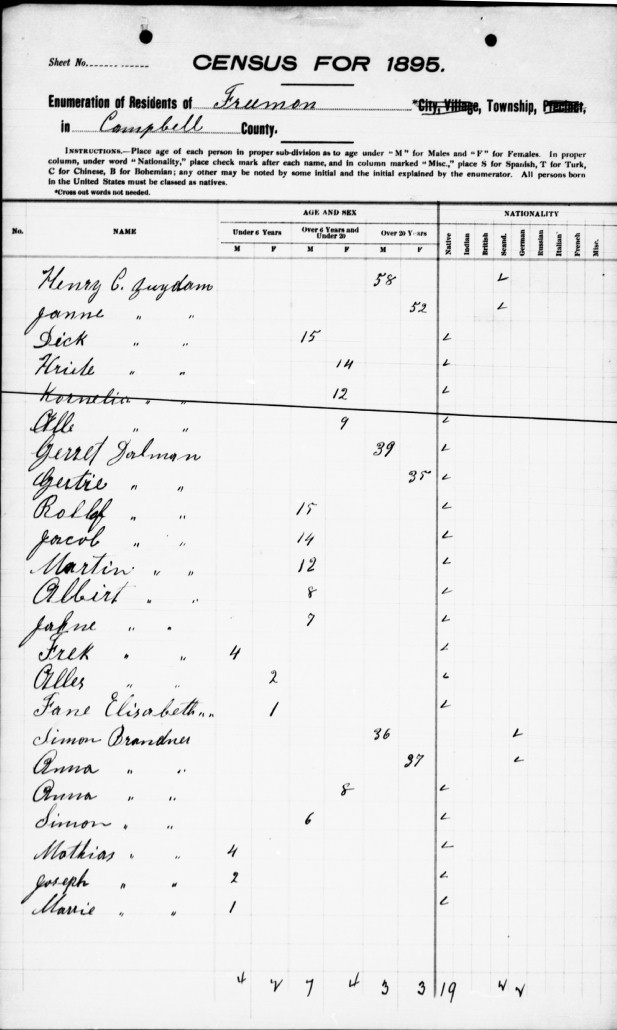 Sheet No.
CENSUS FOR 1895.
Enumeration of Residents of Freemon *City, Village, Township, Precinct,
in Campbell County.
INSTRUCTIONS.—Place age of each person in proper sub-division as to age under "M" for Males and "F" for Females. In proper
column, under word "Nationality," place check mark after each name, and in column marked "Misc.," place S for Spanish, T for Turk,
C for Chinese, B for Bohemian; any other may be noted by some initial and the initial explained by the enumerator. All persons born
in the United States must be classed as natives.
*Cross out words not needed.
AGE AND SEX NATIONALITY
No. NAME Under 6 Years Over 6 Years and Under 20 Over 20 Years Native Indian British Scand. German Russian Italian French Misc.
M F M F M F
Henry C. Zuydam 58 ✓
Janne " " 52 ✓
Dick " " 15 ✓
Hriele " " 14 ✓
Kornelia " " 12 ✓
Alle " " 9 ✓
Gerret Dalman 39 ✓
Gertie " " 35 ✓
Rollof " " 15 ✓
Jacob " " 14 ✓
Martin " " 12 ✓
Albirt " " 8 ✓
Jahne " " 7 ✓
Frek " " 4 ✓
Alles " " 2 ✓
Fane Elisabeth " " 1 ✓
Simon Brandner 36 ✓
Anna " " 37 ✓
Anna " " 8 ✓
Simon " " 6 ✓
Mathias " " 4 ✓
Joseph " " 2 ✓
Marrie " " 1 ✓
4 2 7 4 3 3 19 2 2